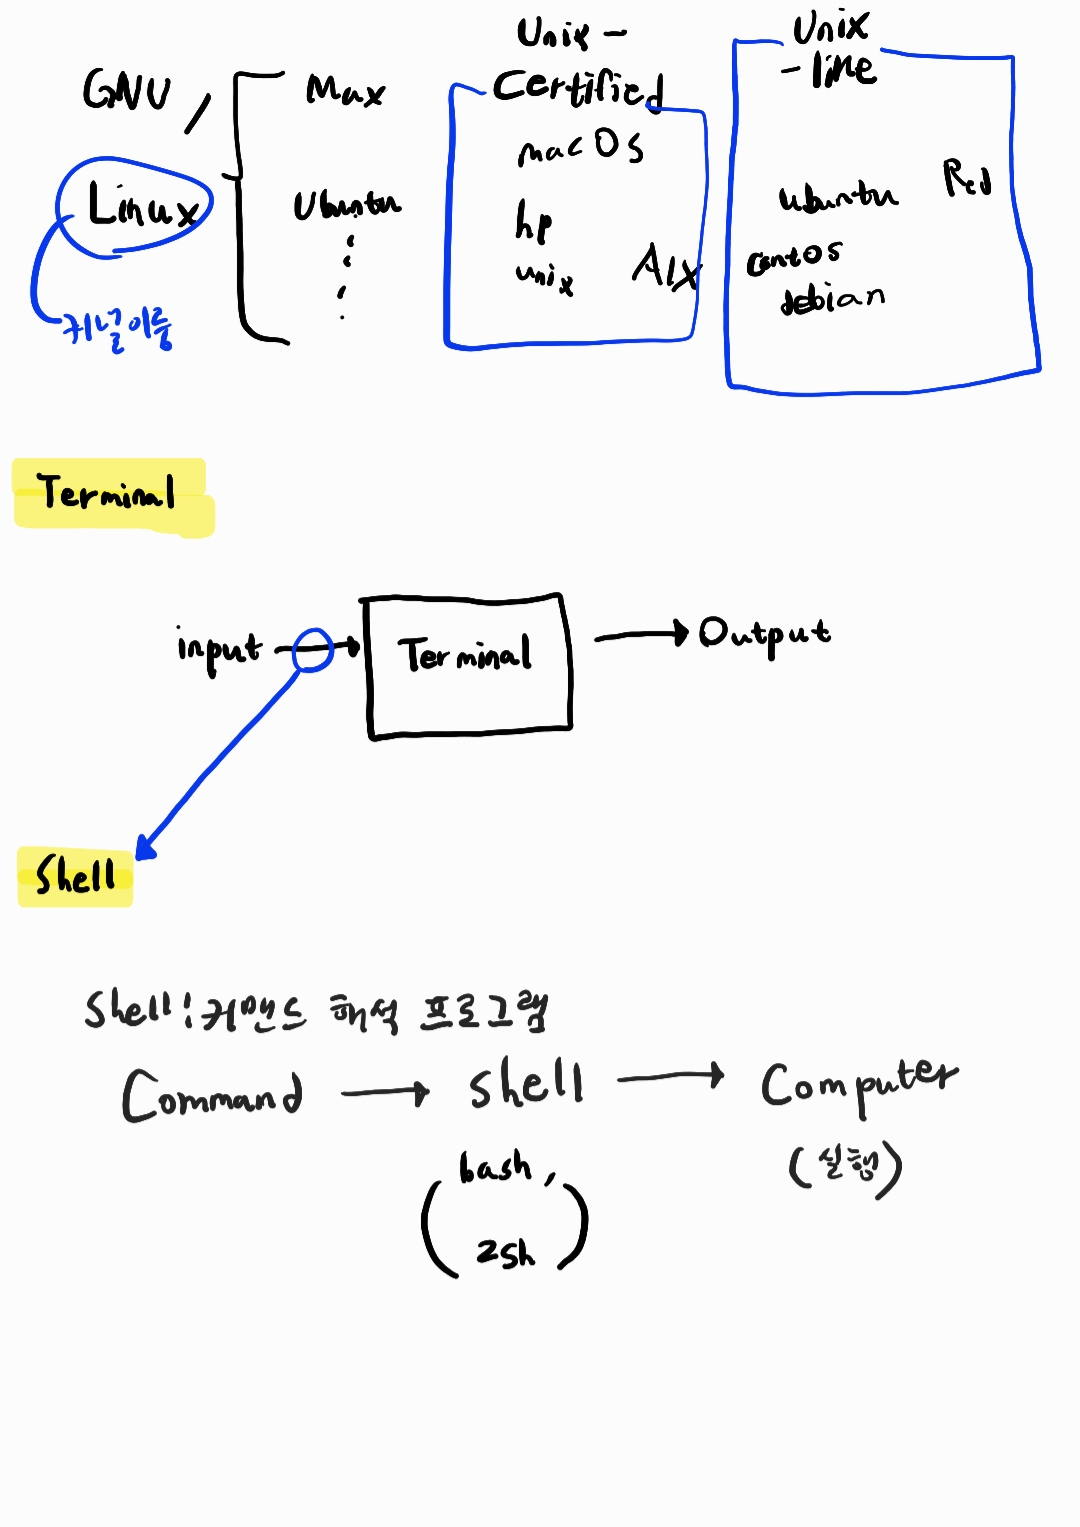 GNU /
Linux
커널이름
Max
Ubuntu
Unix -
Certified
macOS
hp
unix
AIX
Unix
- like
ubuntu
Red
CentOS
debian
Terminal
input → Terminal → Output
Shell
Shell : 커맨드 해석 프로그램
Command → shell → Computer
(bash,
zsh)
(실행)